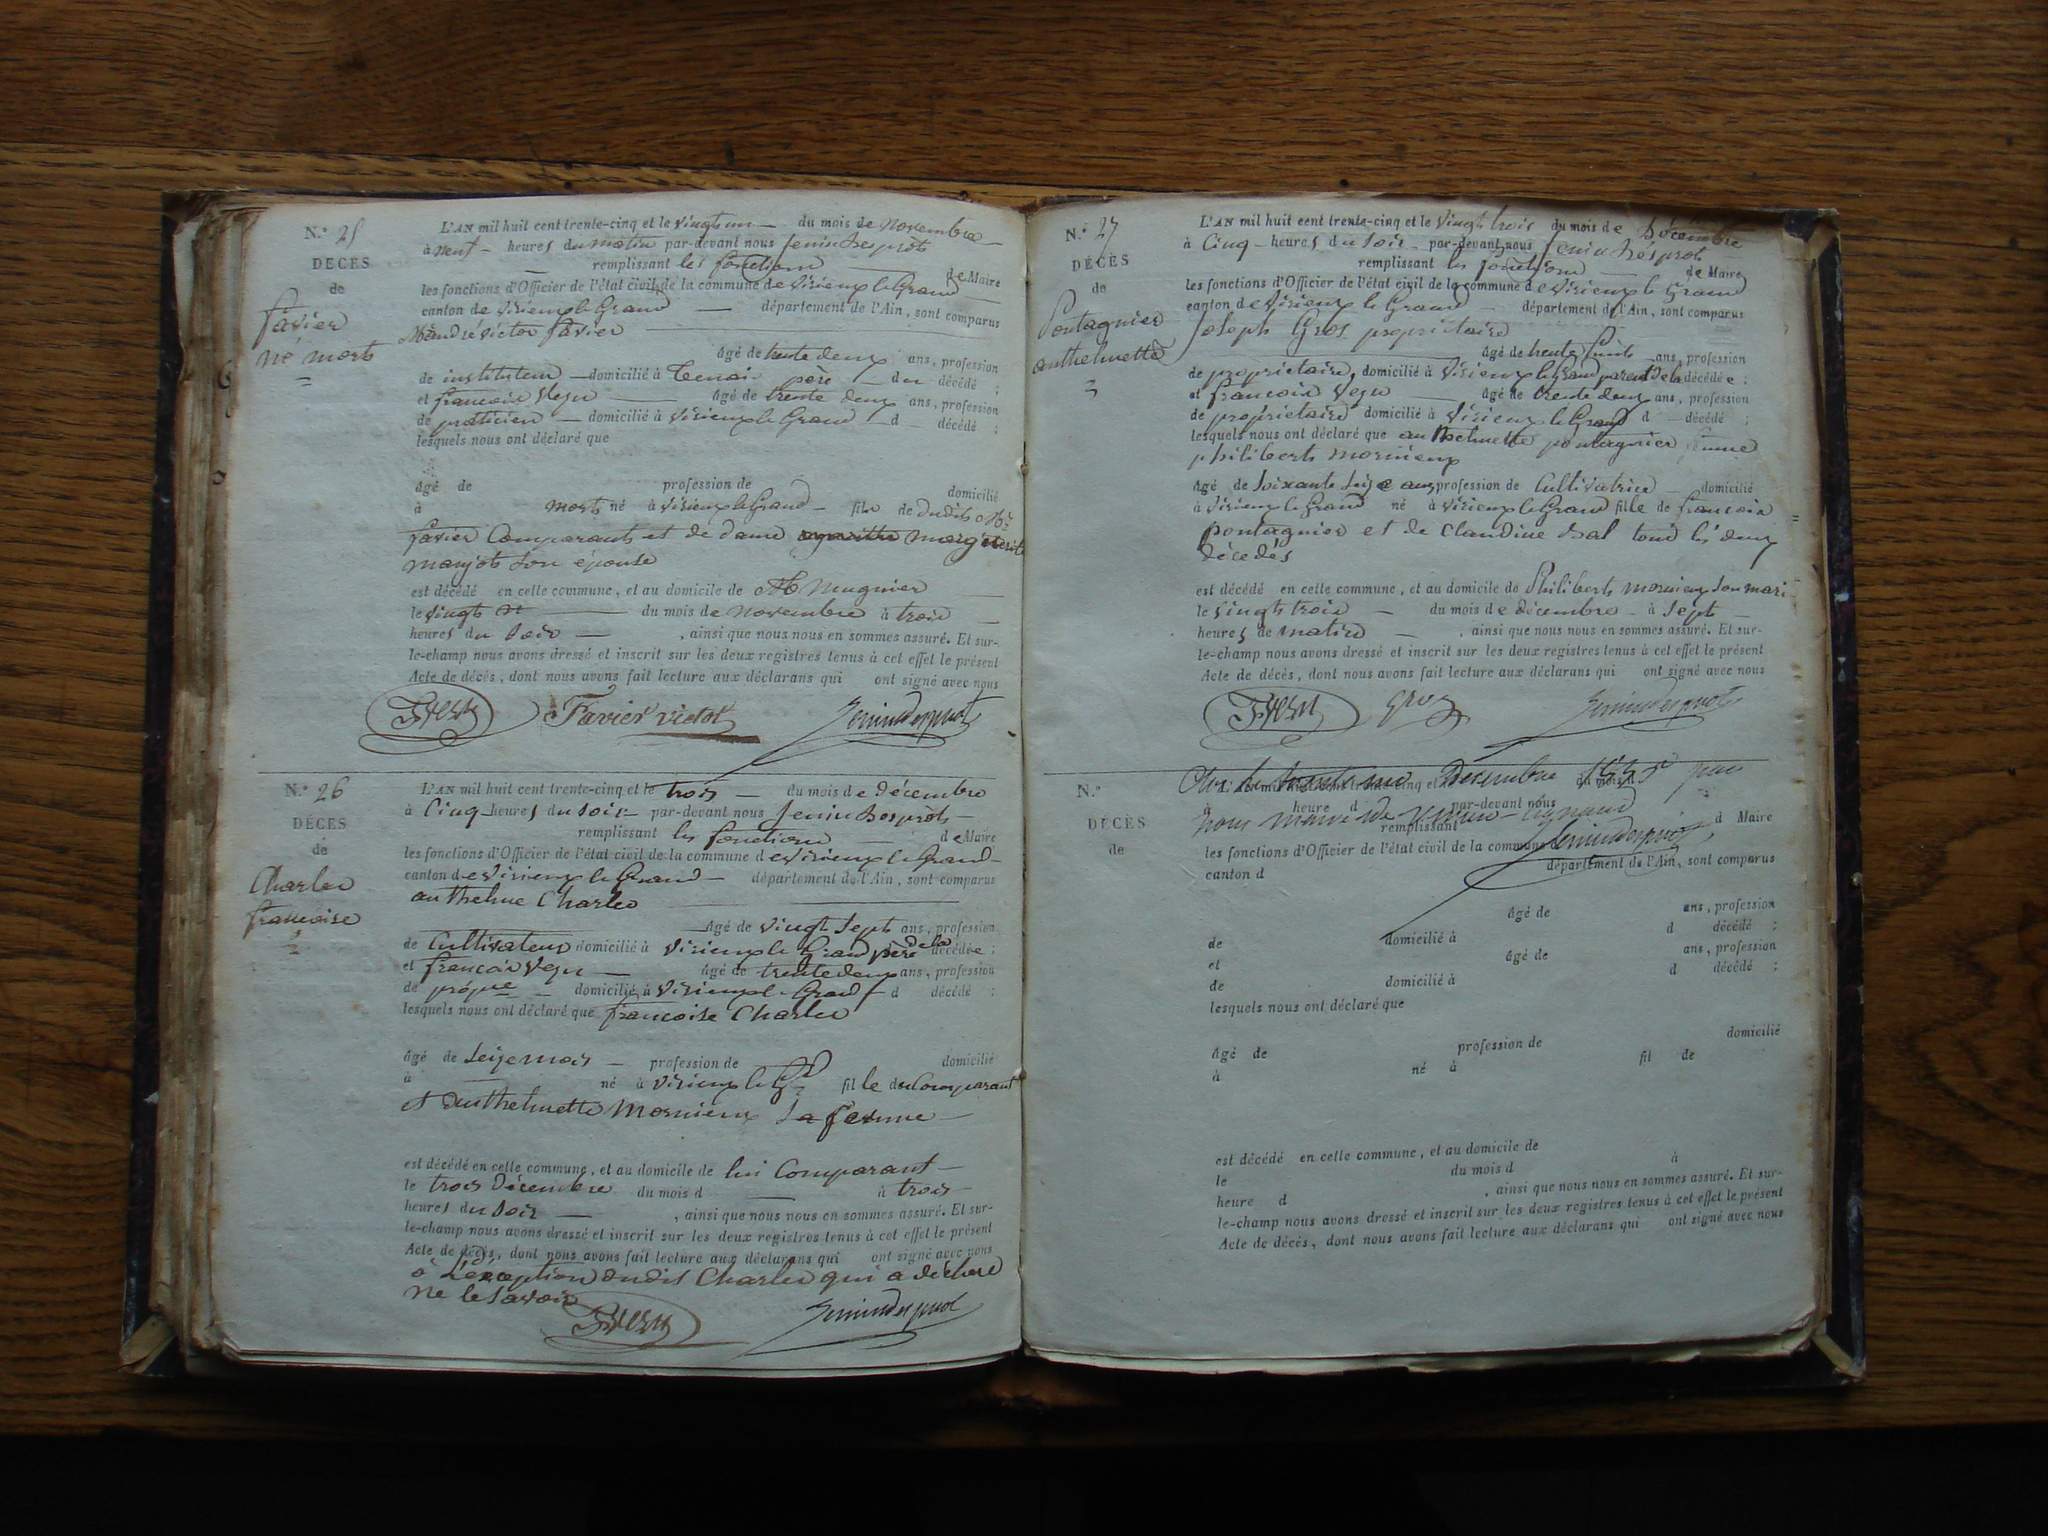 N.° 25
DÉCÈS
de
favier
né mort
L'AN mil huit cent trente-cinq et le vingt un du mois de novembre
à neuf heures du matin par-devant nous
remplissant les fonctions de Maire
les fonctions d'Officier de l'état civil de la commune de Virieux le Grand
canton de Virieux le Grand département de l'Ain, sont comparus
André victor favier
âgé de trente deux ans, profession
de instituteur domicilié à Tenai père du décédé ;
et francois Vezu âgé de trente deux ans, profession
de praticien domicilié à Virieux le Grand d décédé ;
lesquels nous ont déclaré que
âgé de profession de domicilié
à mort né à Virieux le Grand fils de dudit
favier Comparant et de dame marguerite
manjot son épouse
est décédé en cette commune, et au domicile de Mugnier
le vingt du mois de novembre à trois
heures du soir , ainsi que nous nous en sommes assuré. Et sur-
le-champ nous avons dressé et inscrit sur les deux registres tenus à cet effet le présent
Acte de décès, dont nous avons fait lecture aux déclarans qui ont signé avec nous
Favier victor
N.° 26
DÉCÈS
de
Charles
francoise
L'AN mil huit cent trente-cinq et le trois du mois de décembre
à Cinq heures du soir par-devant nous
remplissant les fonctions de Maire
les fonctions d'Officier de l'état civil de la commune de Virieux le Grand
canton de Virieux le Grand département de l'Ain, sont comparus
anthelme Charles
âgé de vingt sept ans, profession
de Cultivateur domicilié à Virieux le Grand père de la décédée ;
et francois Vezu âgé de trente deux ans, profession
de propre domicilié à Virieux le Grand d décédé ;
lesquels nous ont déclaré que francoise Charles
âgé de seize mois profession de domicilié
à né à Virieux le Gd fille du Comparant
et d'anthelmette Mornieux sa femme
est décédé en cette commune, et au domicile de lui Comparant
le trois Décembre du mois d à trois
heures du soir , ainsi que nous nous en sommes assuré. Et sur-
le-champ nous avons dressé et inscrit sur les deux registres tenus à cet effet le présent
Acte de décès, dont nous avons fait lecture aux déclarans qui ont signé avec nous
à L'exception dudit Charles qui a déclaré
ne le savoir
N.° 27
DÉCÈS
de
Pontagnier
anthelmette
L'AN mil huit cent trente-cinq et le vingt trois du mois de Décembre
à Cinq heures du soir par-devant nous
remplissant les fonctions de Maire
les fonctions d'Officier de l'état civil de la commune de Virieux le Grand
canton de Virieux le Grand département de l'Ain, sont comparus
Joseph Gros propriétaire
âgé de trente huit ans, profession
de propriétaire domicilié à Virieux le Grand parent de la décédée ;
et francois Vezu âgé de trente deux ans, profession
de propriétaire domicilié à Virieux le Grand d décédé ;
lesquels nous ont déclaré que anthelmette pontagnier femme
philibert mornieux
âgé de soixante seize ans profession de Cultivatrice domicilié
à Virieux le Grand né à Virieux le Grand fille de francois
pontagnier et de Claudine tous les deux
décédés
est décédé en cette commune, et au domicile de Philibert mornieux son mari
le vingt trois du mois de décembre à sept
heures de matin , ainsi que nous nous en sommes assuré. Et sur-
le-champ nous avons dressé et inscrit sur les deux registres tenus à cet effet le présent
Acte de décès, dont nous avons fait lecture aux déclarans qui ont signé avec nous
Gros
Clos le trente un Décembre 1835 par
nous maire de
N.°
DÉCÈS
de
L'AN mil huit cent trente-cinq et le du mois d
à heure d par-devant nous
remplissant d Maire
les fonctions d'Officier de l'état civil de la commune
canton d département de l'Ain, sont comparus
âgé de ans, profession
de domicilié à d décédé ;
et âgé de ans, profession
de domicilié à d décédé ;
lesquels nous ont déclaré que
âgé de profession de domicilié
à né à fil de
est décédé en cette commune, et au domicile de
le du mois d à
heure d , ainsi que nous nous en sommes assuré. Et sur-
le-champ nous avons dressé et inscrit sur les deux registres tenus à cet effet le présent
Acte de décès, dont nous avons fait lecture aux déclarans qui ont signé avec nous